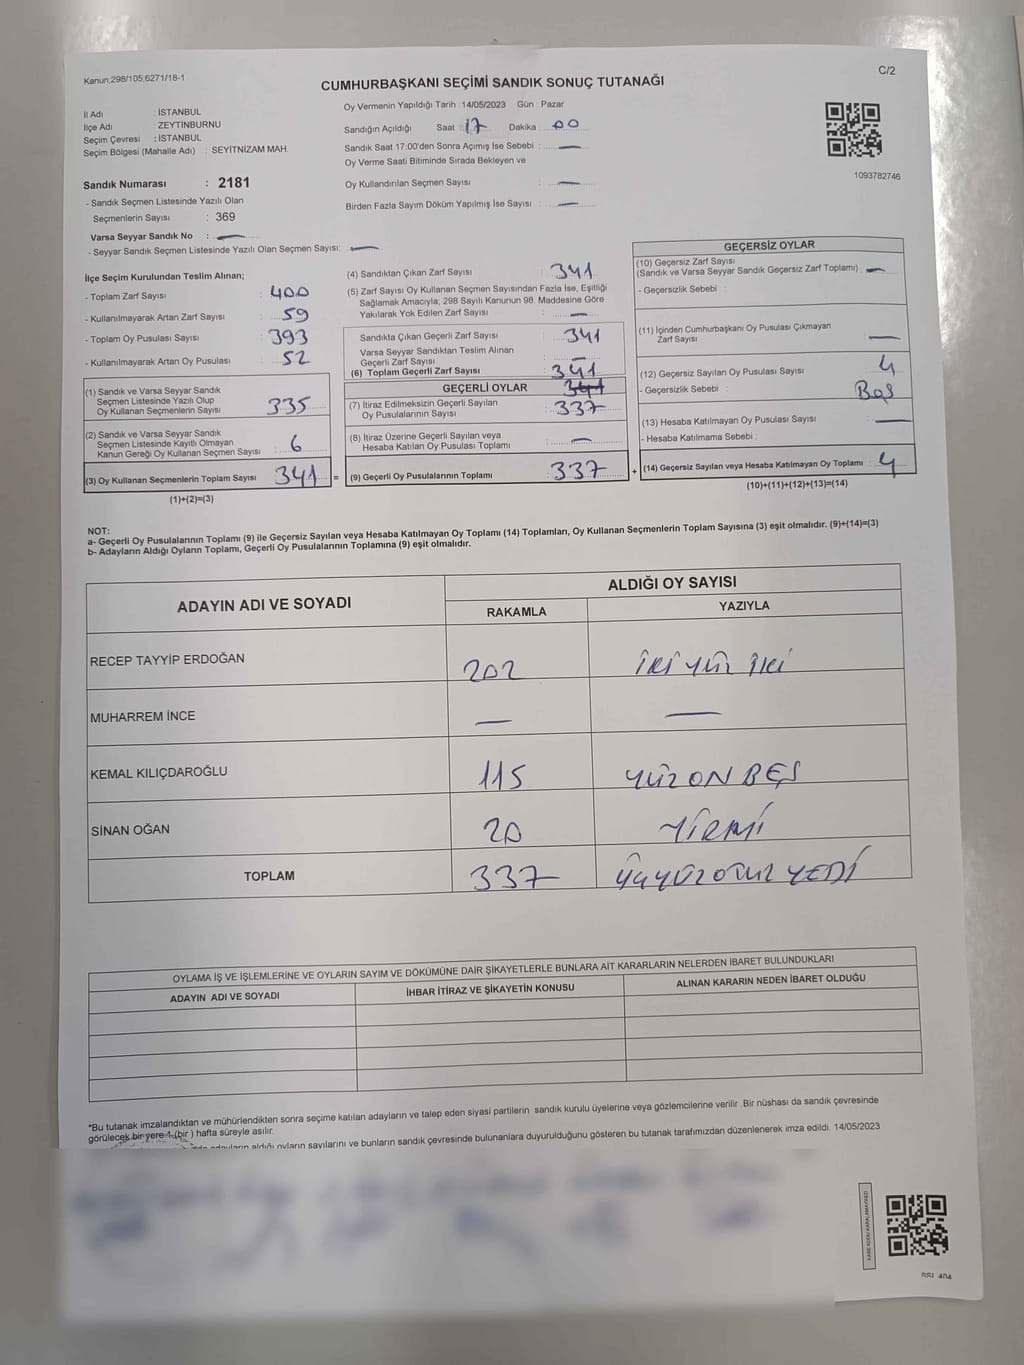 Kanun:298/105;6271/18-1
C/2
CUMHURBAŞKANI SEÇİMİ SANDIK SONUÇ TUTANAĞI
İl Adı : İSTANBUL
İlçe Adı : ZEYTİNBURNU
Seçim Çevresi : İSTANBUL
Seçim Bölgesi (Mahalle Adı) : SEYİTNİZAM MAH.
Sandık Numarası : 2181
- Sandık Seçmen Listesinde Yazılı Olan
Seçmenlerin Sayısı : 369
Varsa Seyyar Sandık No : —
- Seyyar Sandık Seçmen Listesinde Yazılı Olan Seçmen Sayısı: —
Oy Vermenin Yapıldığı Tarih : 14/05/2023 Gün : Pazar
Sandığın Açıldığı Saat : 17 Dakika : 00
Sandık Saat 17:00'den Sonra Açımış İse Sebebi : —
Oy Verme Saati Bitiminde Sırada Bekleyen ve
Oy Kullandırılan Seçmen Sayısı : —
Birden Fazla Sayım Döküm Yapılmış İse Sayısı : —
1093782746
İlçe Seçim Kurulundan Teslim Alınan;
- Toplam Zarf Sayısı : 400
- Kullanılmayarak Artan Zarf Sayısı : 59
- Toplam Oy Pusulası Sayısı : 393
- Kullanılmayarak Artan Oy Pusulası : 52
(1) Sandık ve Varsa Seyyar Sandık
Seçmen Listesinde Yazılı Olup
Oy Kullanan Seçmenlerin Sayısı : 335
(2) Sandık ve Varsa Seyyar Sandık
Seçmen Listesinde Kayıtlı Olmayan
Kanun Gereği Oy Kullanan Seçmen Sayısı : 6
(3) Oy Kullanan Seçmenlerin Toplam Sayısı : 341 =
(1)+(2)=(3)
(4) Sandıktan Çıkan Zarf Sayısı : 341
(5) Zarf Sayısı Oy Kullanan Seçmen Sayısından Fazla İse, Eşitliği
Sağlamak Amacıyla; 298 Sayılı Kanunun 98. Maddesine Göre
Yakılarak Yok Edilen Zarf Sayısı : —
Sandıkta Çıkan Geçerli Zarf Sayısı : 341
Varsa Seyyar Sandıktan Teslim Alınan
Geçerli Zarf Sayısı : —
(6) Toplam Geçerli Zarf Sayısı : 341
GEÇERLİ OYLAR 341
(7) İtiraz Edilmeksizin Geçerli Sayılan
Oy Pusulalarının Sayısı : 337
(8) İtiraz Üzerine Geçerli Sayılan veya
Hesaba Katılan Oy Pusulası Toplamı : —
(9) Geçerli Oy Pusulalarının Toplamı : 337 +
GEÇERSİZ OYLAR
(10) Geçersiz Zarf Sayısı
(Sandık ve Varsa Seyyar Sandık Geçersiz Zarf Toplamı) : —
- Geçersizlik Sebebi :
(11) İçinden Cumhurbaşkanı Oy Pusulası Çıkmayan
Zarf Sayısı : —
(12) Geçersiz Sayılan Oy Pusulası Sayısı : 4
- Geçersizlik Sebebi : Boş
(13) Hesaba Katılmayan Oy Pusulası Sayısı : —
- Hesaba Katılmama Sebebi :
(14) Geçersiz Sayılan veya Hesaba Katılmayan Oy Toplamı : 4
(10)+(11)+(12)+(13)=(14)
NOT:
a- Geçerli Oy Pusulalarının Toplamı (9) ile Geçersiz Sayılan veya Hesaba Katılmayan Oy Toplamı (14) Toplamları, Oy Kullanan Seçmenlerin Toplam Sayısına (3) eşit olmalıdır. (9)+(14)=(3)
b- Adayların Aldığı Oyların Toplamı, Geçerli Oy Pusulalarının Toplamına (9) eşit olmalıdır.
ADAYIN ADI VE SOYADI
ALDIĞI OY SAYISI
RAKAMLA YAZIYLA
RECEP TAYYİP ERDOĞAN 202 İKİ YÜZ İKİ
MUHARREM İNCE — —
KEMAL KILIÇDAROĞLU 115 YÜZ ON BEŞ
SİNAN OĞAN 20 YİRMİ
TOPLAM 337 ÜÇYÜZ OTUZ YEDİ
OYLAMA İŞ VE İŞLEMLERİNE VE OYLARIN SAYIM VE DÖKÜMÜNE DAİR ŞİKAYETLERLE BUNLARA AİT KARARLARIN NELERDEN İBARET BULUNDUKLARI
ADAYIN ADI VE SOYADI İHBAR İTİRAZ VE ŞİKAYETİN KONUSU ALINAN KARARIN NEDEN İBARET OLDUĞU
*Bu tutanak imzalandıktan ve mühürlendikten sonra seçime katılan adayların ve talep eden siyasi partilerin sandık kurulu üyelerine veya gözlemcilerine verilir. Bir nüshası da sandık çevresinde
görülecek bir yere 1 (bir) hafta süreyle asılır.
adayların aldığı oyların sayılarını ve bunların sandık çevresinde bulunanlara duyurulduğunu gösteren bu tutanak tarafımızdan düzenlenerek imza edildi. 14/05/2023